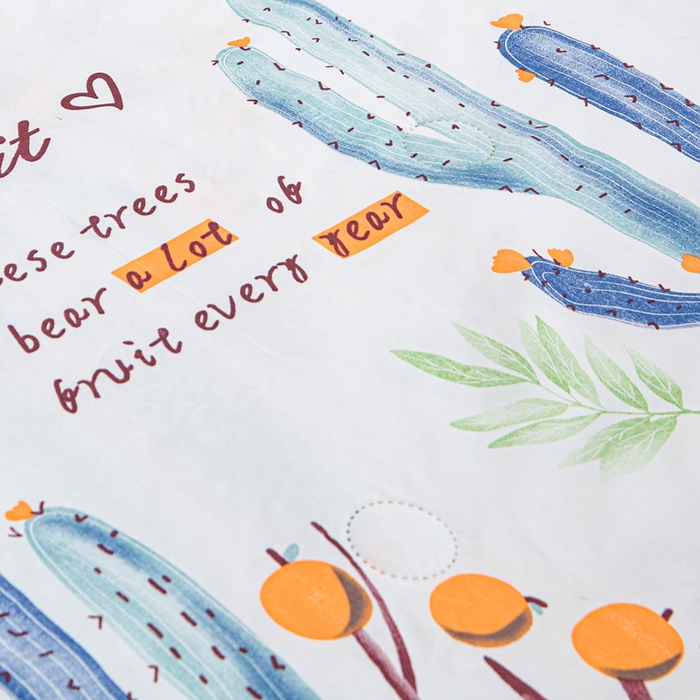 it
ese trees
bear a lot of
fruit every year